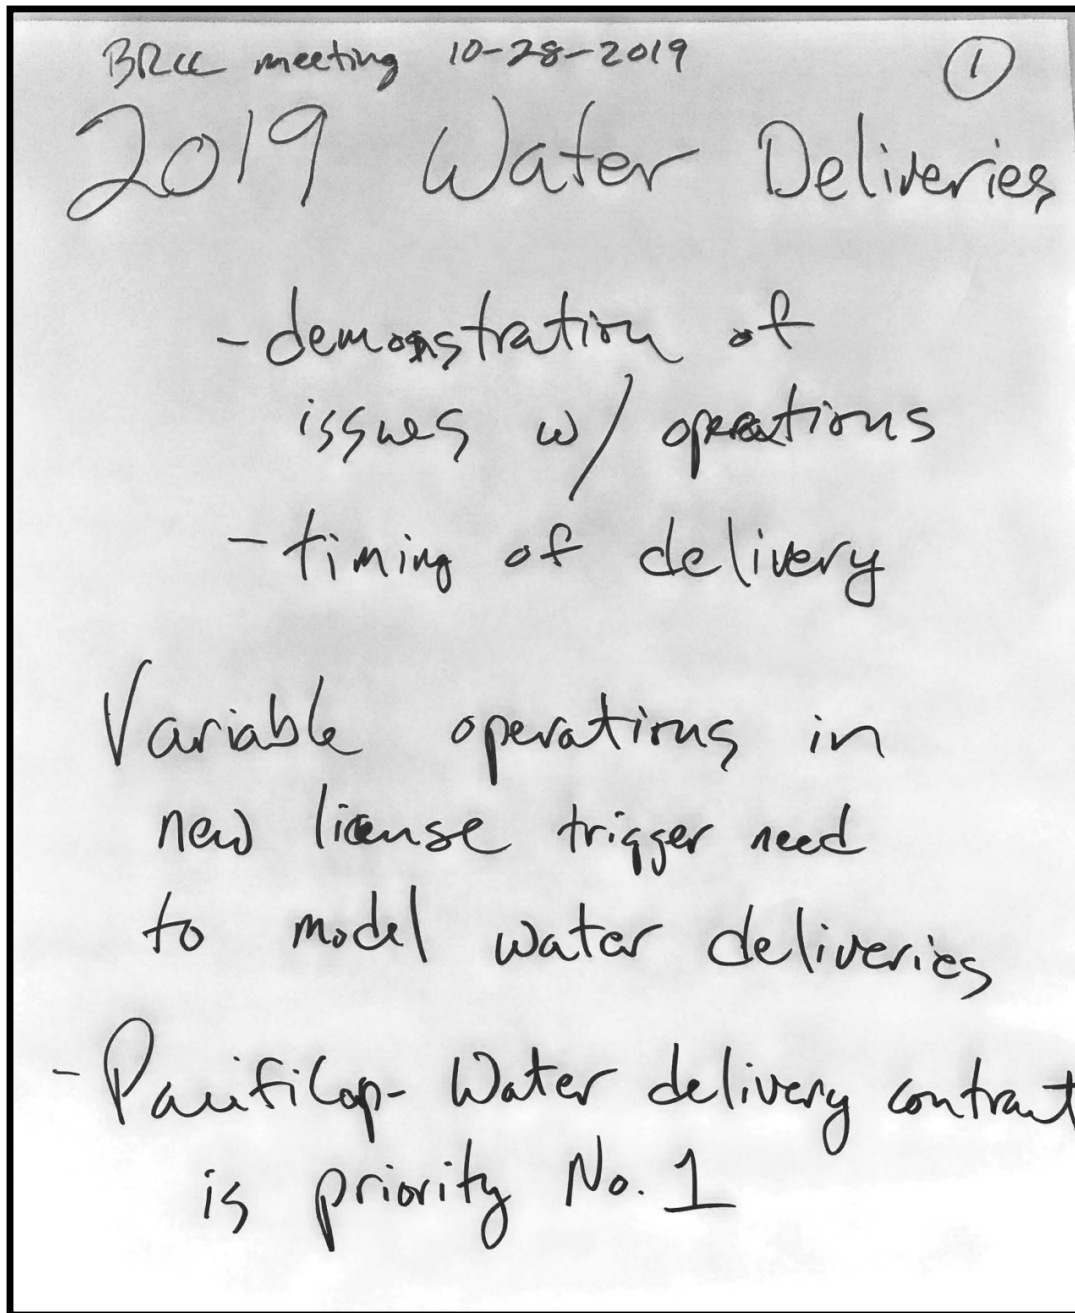 BRCC meeting 10-28-2019 1
2019 Water Deliveries
- demonstration of
issues w/ operations
- timing of delivery
Variable operations in
new license trigger need
to model water deliveries
- PacifiCop- Water delivery contract
is priority No. 1